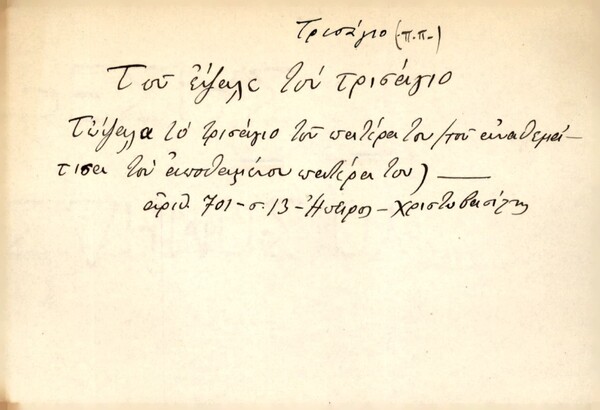 Τρισάγιο (π.π.)
Τοῦ ἔψαλε τοῦ τρισάγιο
Τὤψαλα τὸ τρισάγιο τοῦ πατέρα του (τοῦ ἀναθεμά-
τισα τοῦ ἀποθαμένου πατέρα του) —
ἀριθ. 701 - σ. 13 - Ἤπειρος - Χριστοβασίλης